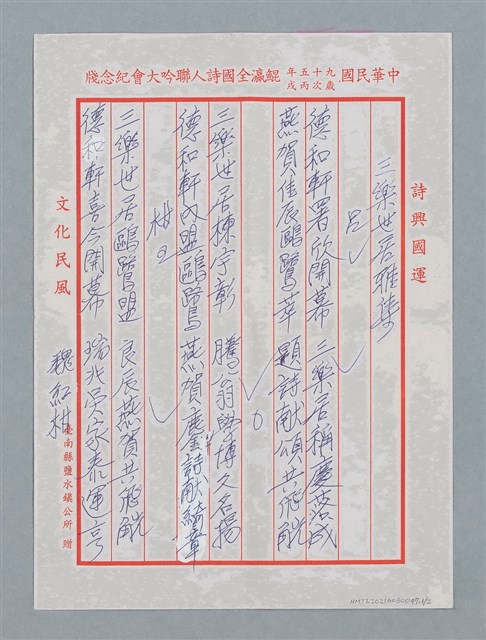 中華民國九十五年歲次丙戌鯤瀛全國詩人聯吟大會紀念牋
詩興國運
三樂世居雅築
呂
德和軒署欣開幕 三樂居稱慶落成
燕賀佳辰鷗鷺萃 題詩献頌共飛觥
三樂世居棟宇彰 騰翁學博久名揚
德和軒內盟鷗鷺 燕賀鏖詩献綺章
柑
三樂世居鷗鷺盟 良辰燕賀共飛觥
德和軒喜今開幕 瑞兆吳家泰運亨
魏紅柑
文化民風
臺南縣鹽水鎮公所 贈